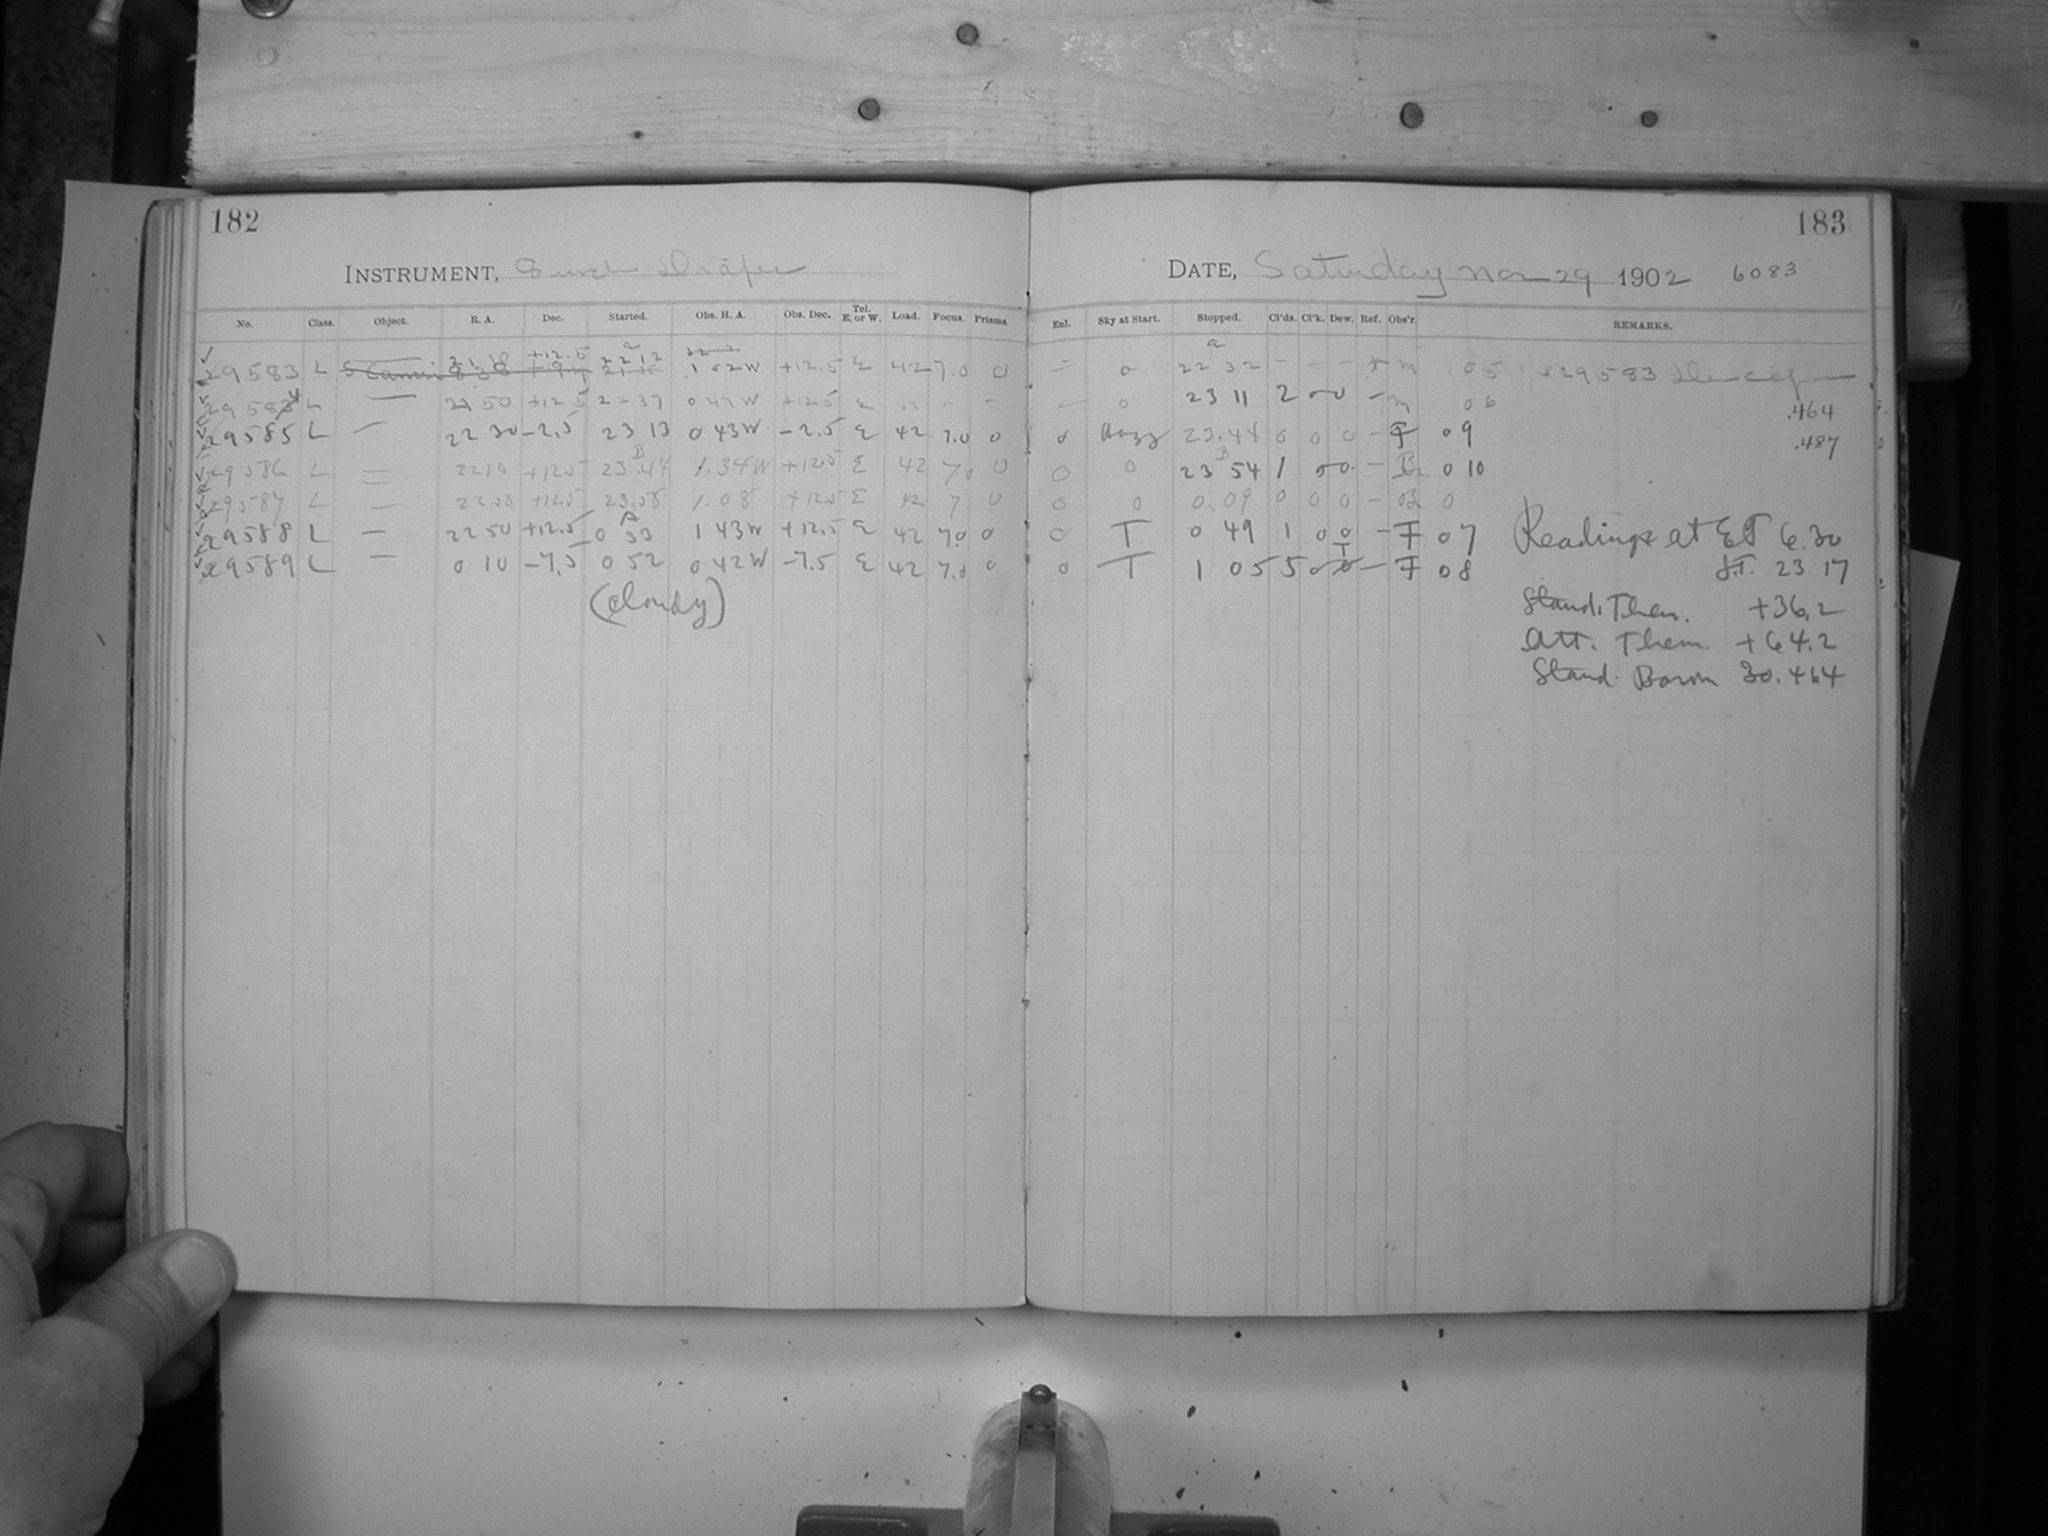 182
INSTRUMENT, 8 inch Draper
No. Class. Object. R. A. Dec. Started. Obs. H. A. Obs. Dec. Tel. E. or W. Load. Focus. Prisms.
29583 L 21 10 +12.5 22 12 1 02W +12.5 E 42 7.0 0
29584 L — 21 50 +12.5 22 37 0 47W +12.5 E 42 - -
29585 L — 22 30 -2.5 23 13 0 43W -2.5 E 42 7.0 0
29586 L — 22 10 +12.5 B 23.44 1.34W +12.5 E 42 7.0 0
29587 L — 22.50 +12.5 23.58 1.08 +12.5 E 42 7 0
29588 L — 22 50 +12.5 A 0 33 1 43W +12.5 E 42 7.0 0
29589 L — 0 10 -7.5 0 52 0 42W -7.5 E 42 7.0 0
(Cloudy)
183
DATE, Saturday Nov 29 1902 6083
Enl. Sky at Start. Stopped. Cl'ds. Cl'k. Dew. Ref. Obs'r. REMARKS.
- 0 a 22 32 - - - m 05 29583
- 0 23 11 2 0 0 - m 06 .464
0 Hazy 23.44 0 0 0 - F 09 .487
0 0 B 23 54 1 0 0 - B 0 10
0 0 0.09 0 0 0 - B 0
0 T 0 49 1 0 0 - F 07 Readings at ET 6.30
0 T 1 05 5 0 T - F 08 S.T. 23 17
Stand. Ther. +36.2
Att. Therm +64.2
Stand. Barom 30.464